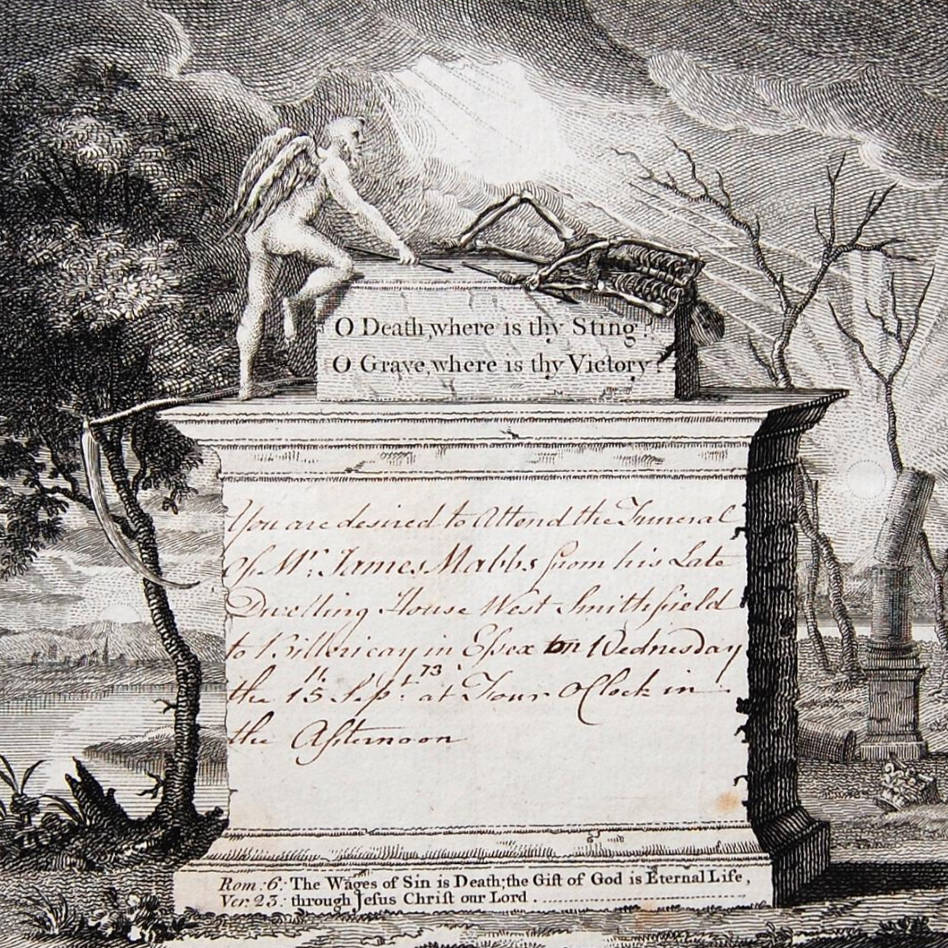 O Death, where is thy Sting?
O Grave, where is thy Victory?
You are desired to Attend the Funeral
Of Mr. James Mabbs from his Late
Dwelling House West Smithfield
to Billericay in Essex on Wednesday
the 15 Sepr. 73 at Four O Clock in
the Afternoon
Rom: 6: The Wages of Sin is Death; the Gift of God is Eternal Life,
Ver. 23: through Jesus Christ our Lord.